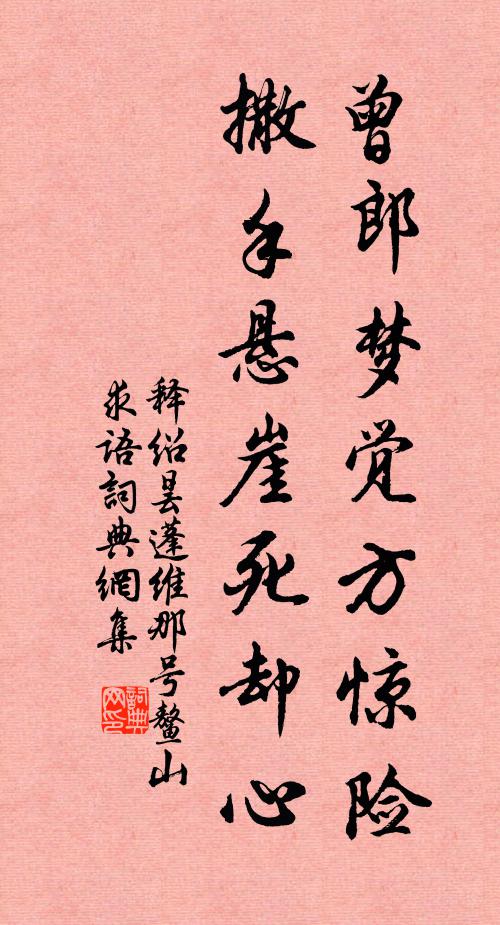 曾郎梦觉方惊险
撒手悬崖死却心
释绍昙蓬维那号鳌山
求语詞典網集
詞典网印